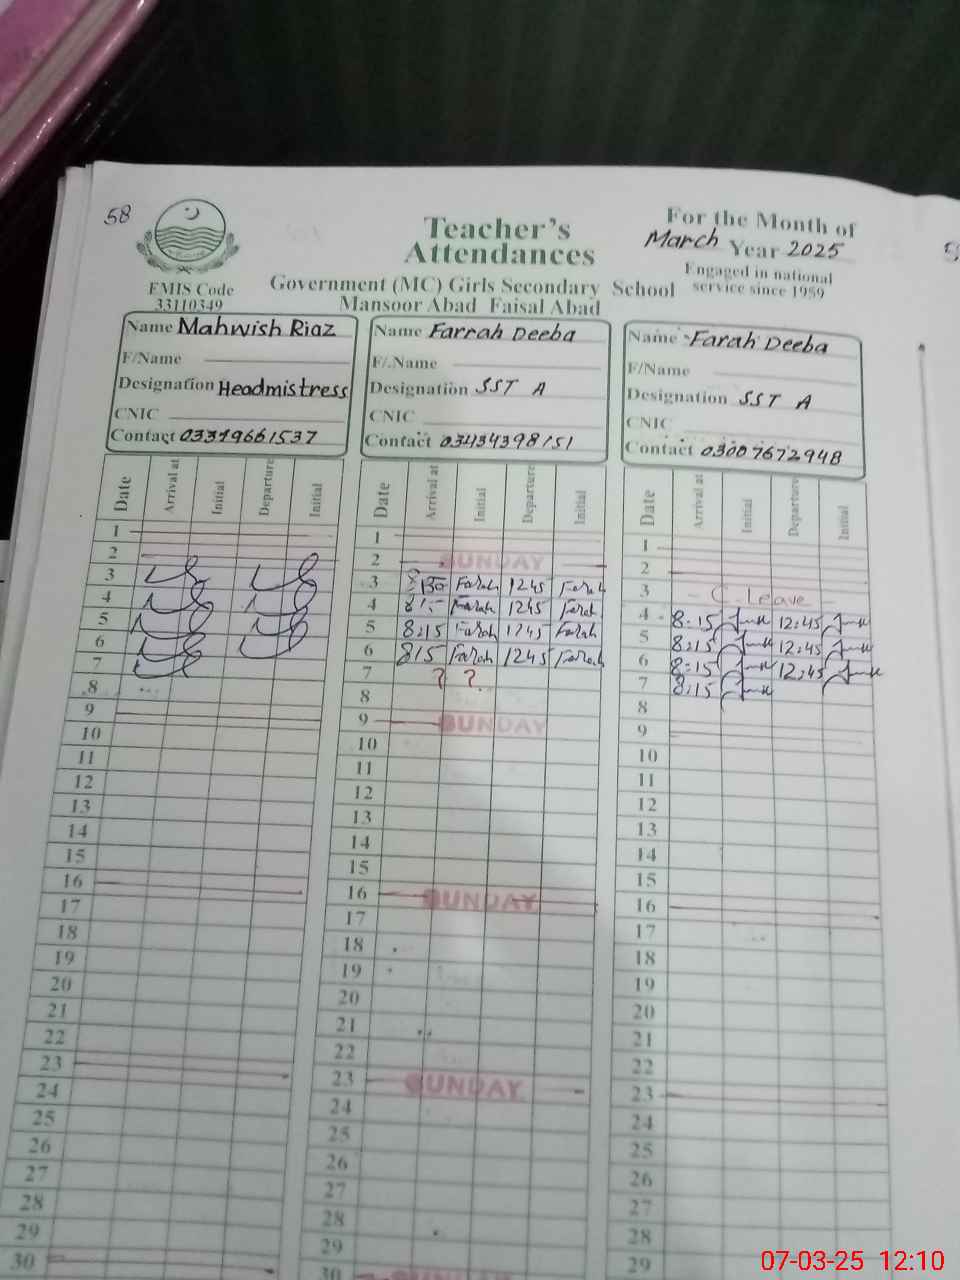 58
Teacher's
Attendances
For the Month of
March Year 2025
Engaged in national
service since 1959
EMIS Code
33110349
Government (MC) Girls Secondary School
Mansoor Abad Faisal Abad
Name Mahwish Riaz
F/Name
Designation Headmistress
CNIC
Contact 03319661537
Name Farrah Deeba
F/.Name
Designation SST A
CNIC
Contact 03434398151
Name Farah Deeba
F/Name
Designation SST A
CNIC
Contact 03007672948
Date Arrival at Initial Departure Initial
1
2
3
4
5
6
7
8
9
10
11
12
13
14
15
16
17
18
19
20
21
22
23
24
25
26
27
28
29
30
Date Arrival at Initial Departure Initial
1
2 SUNDAY
3 8:30 Farah 1245 Farah
4 Farah 1245 Farah
5 8:15 Farah 1245 Farah
6 815 Farah 1245 Farah
7 ? ?
8
9 SUNDAY
10
11
12
13
14
15
16 SUNDAY
17
18
19
20
21
22
23 SUNDAY
24
25
26
27
28
29
30
Date Arrival at Initial Departure Initial
1
2
3 - C. Leave -
4 8:15 12:45
5 8:15 12:45
6 8:15 12:45
7 8:15
8
9
10
11
12
13
14
15
16
17
18
19
20
21
22
23
24
25
26
27
28
29
07-03-25 12:10